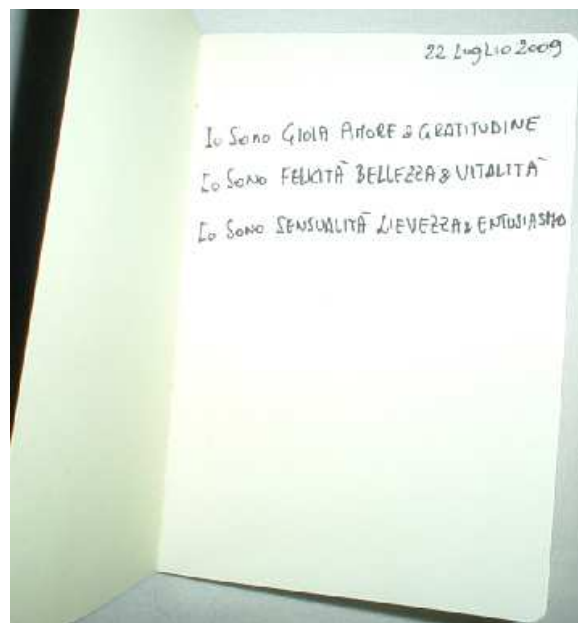 22 Luglio 2009
Io Sono GIOIA AMORE & GRATITUDINE
Io Sono FELICITÀ BELLEZZA & VITALITÀ
Io Sono SENSUALITÀ LIEVEZZA & ENTUSIASMO